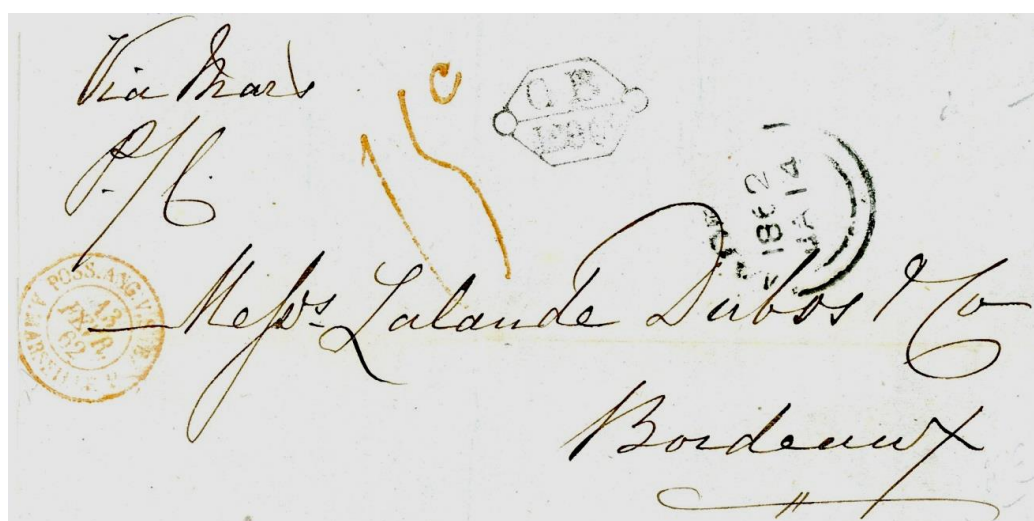 Via Mars
P./C.
G B
1F 90c
1862
JA 14
POSS. ANG. V. SUEZ
13
FEVR.
62
MARSEILLE
Messrs. Lalande Dubos & Co
Bordeaux